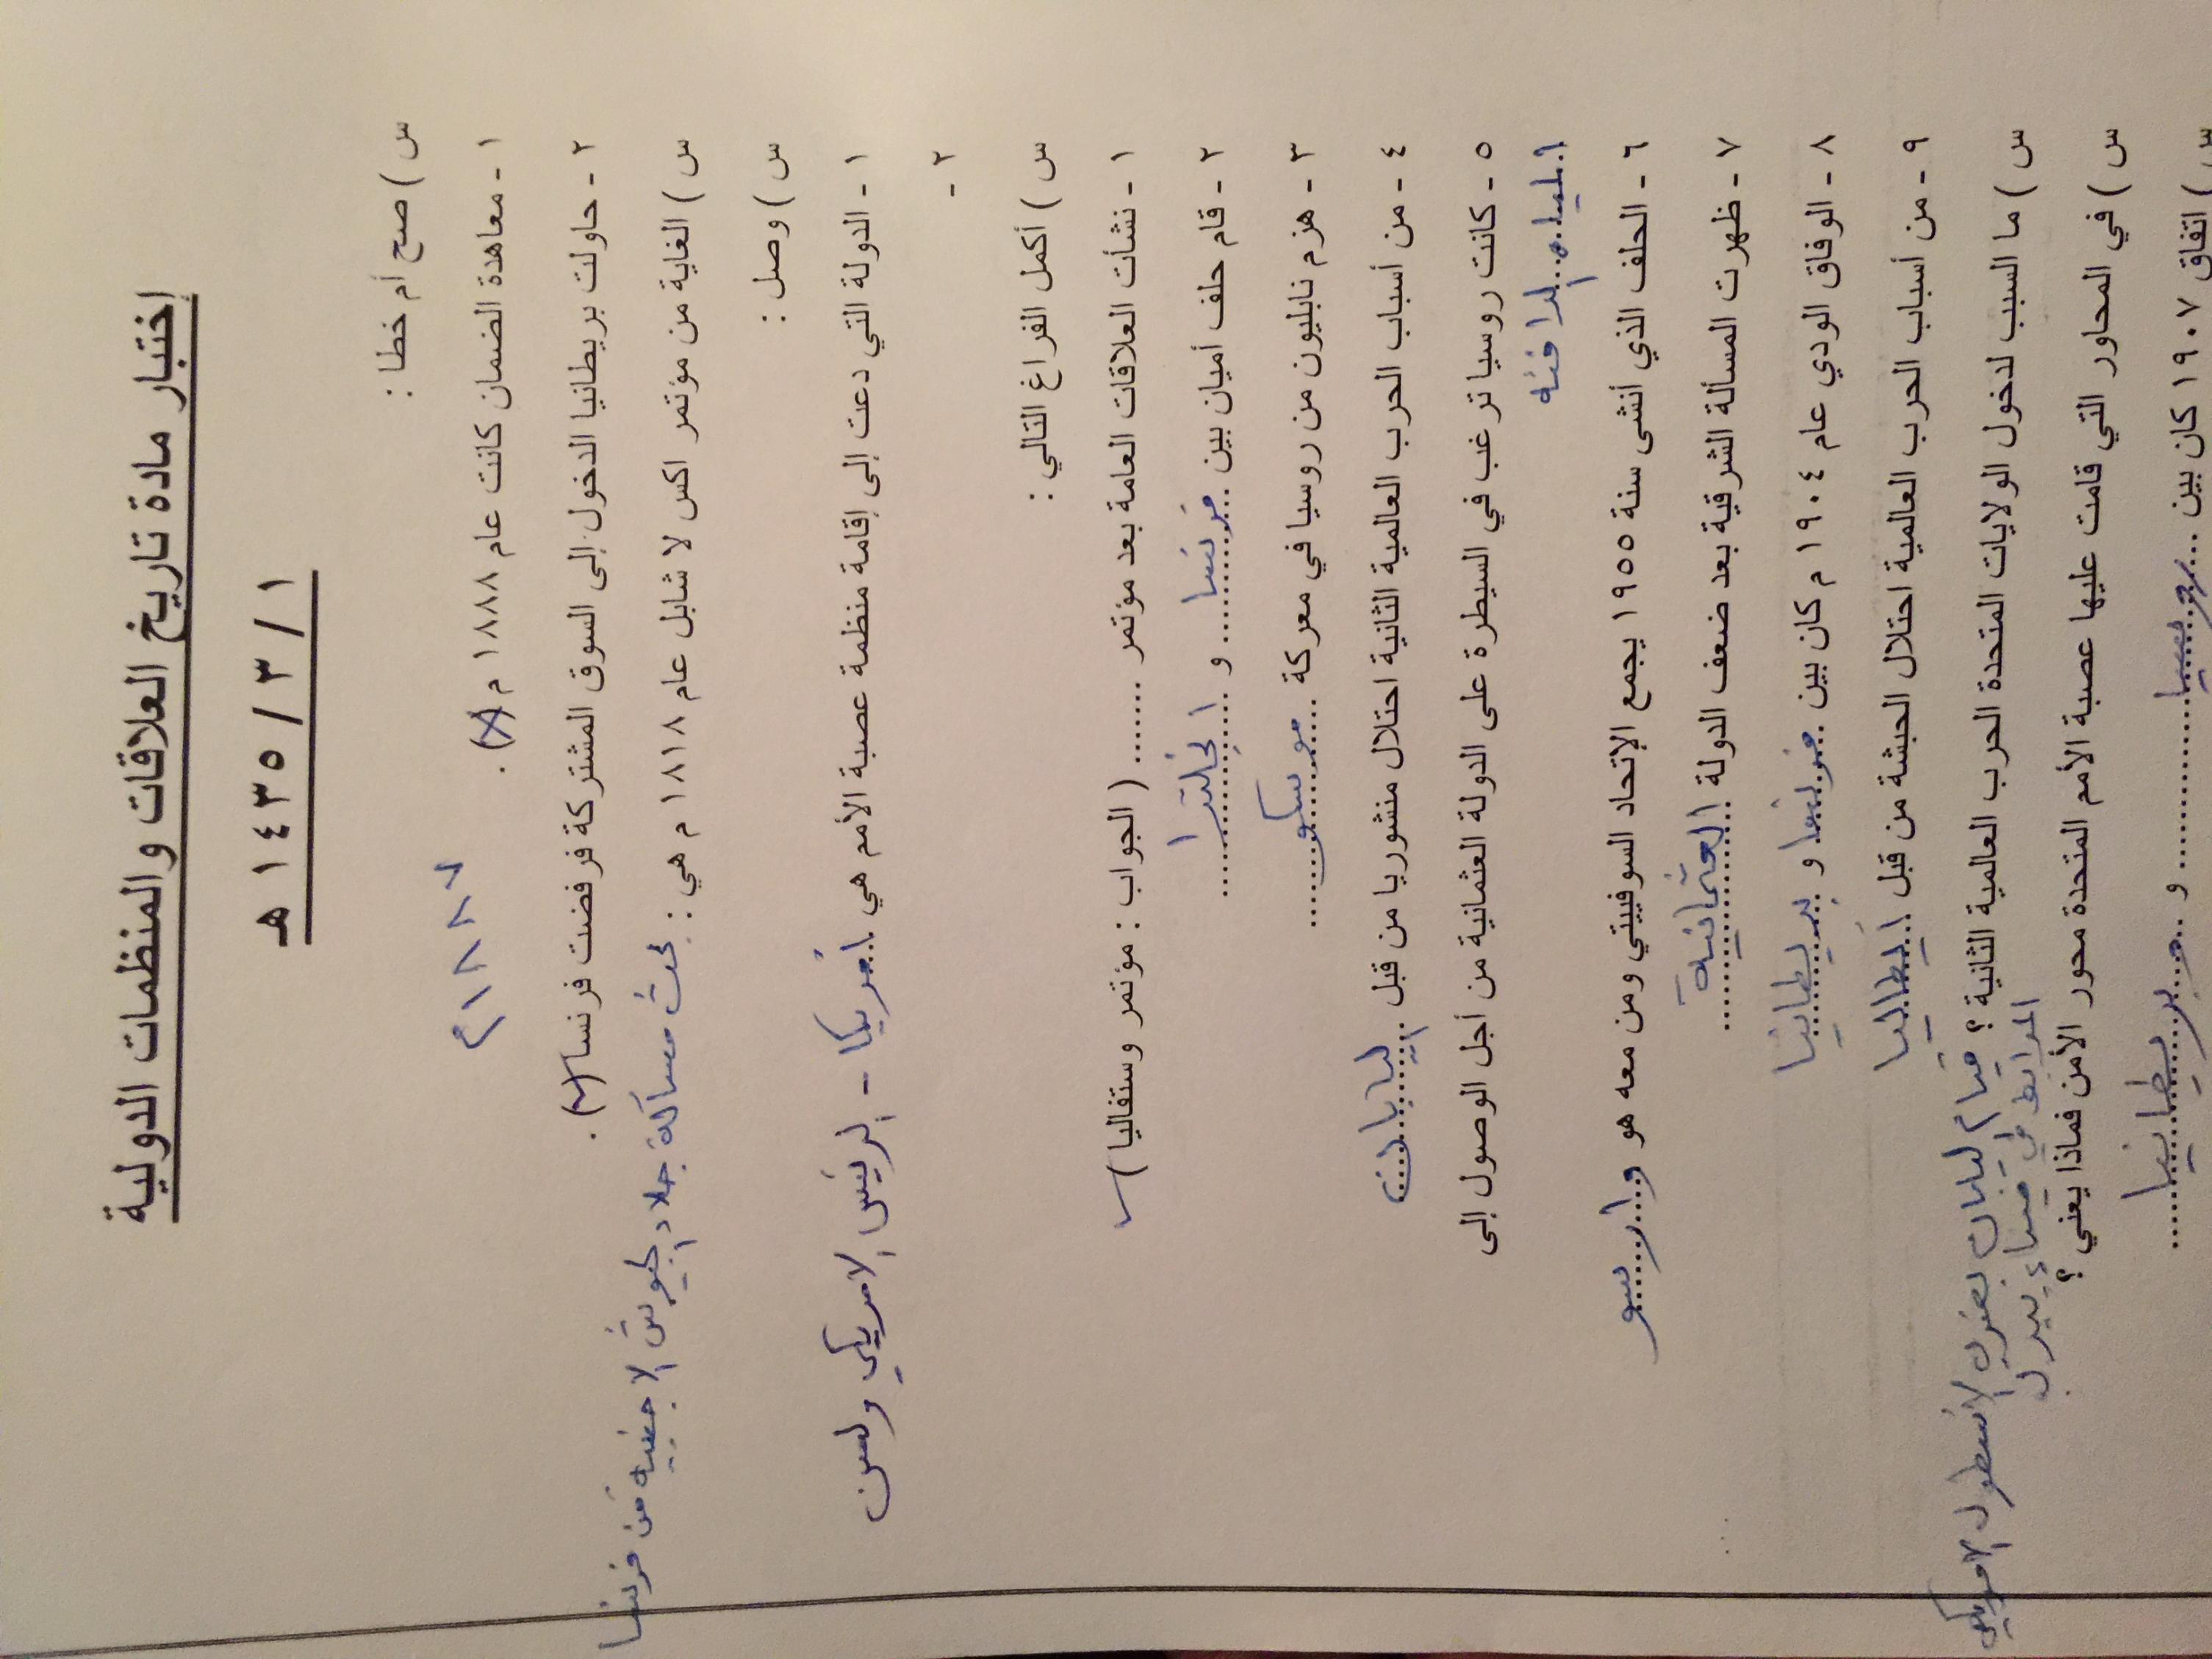 إختبار مادة تاريخ العلاقات والمنظمات الدولية
١ / ٣ / ١٤٣٥ هـ
س ) صح أم خطا :
١ - معاهدة الضمان كانت عام ١٨٨٨ م (X) .
١٨٨٧م
٢ - حاولت بريطانيا الدخول إلى السوق المشتركة فرفضت فرنسا (✓) .
س ) الغاية من مؤتمر اكس لا شابل عام ١٨١٨ م هي : بحث مسألة جلاء الجيوش الاجنبيه من فرنسا
س ) وصل :
١ - الدولة التي دعت إلى إقامة منظمة عصبة الأمم هي .. أمريكا - الرئيس الامريكي ولسن
٢ -
س ) أكمل الفراغ التالي :
١ - نشأت العلاقات العامة بعد مؤتمر ....... ( الجواب : مؤتمر وستفاليا ) ✓
٢ - قام حلف أميان بين .. فرنسا .. و .. انجلترا ..
٣ - هزم نابليون من روسيا في معركة .. موسكو ..
٤ - من أسباب الحرب العالمية الثانية احتلال منشوريا من قبل .. اليابان ..
٥ - كانت روسيا ترغب في السيطرة على الدولة العثمانية من أجل الوصول إلى
المياه الدافئه
٦ - الحلف الذي أنشى سنة ١٩٥٥ يجمع الإتحاد السوفييتي ومن معه هو وارسو
٧ - ظهرت المسألة الشرقية بعد ضعف الدولة .. العثمانية ..
٨ - الوفاق الودي عام ١٩٠٤ م كان بين .. فرنسا و بريطانيا
٩ - من أسباب الحرب العالمية احتلال الحبشة من قبل .. إيطاليا
س ) ما السبب لدخول الولايات المتحدة الحرب العالمية الثانية ؟ قيام ليابان بضرب الاسطول الامريكي
المرابط في ميناء بيرل
س ) في المحاور التي قامت عليها عصبة الأمم المتحدة محور الأمن فماذا يعني ؟
س ) اتفاق ١٩٠٧ كان بين ... روسيا .......... و .. بريطانيا ....